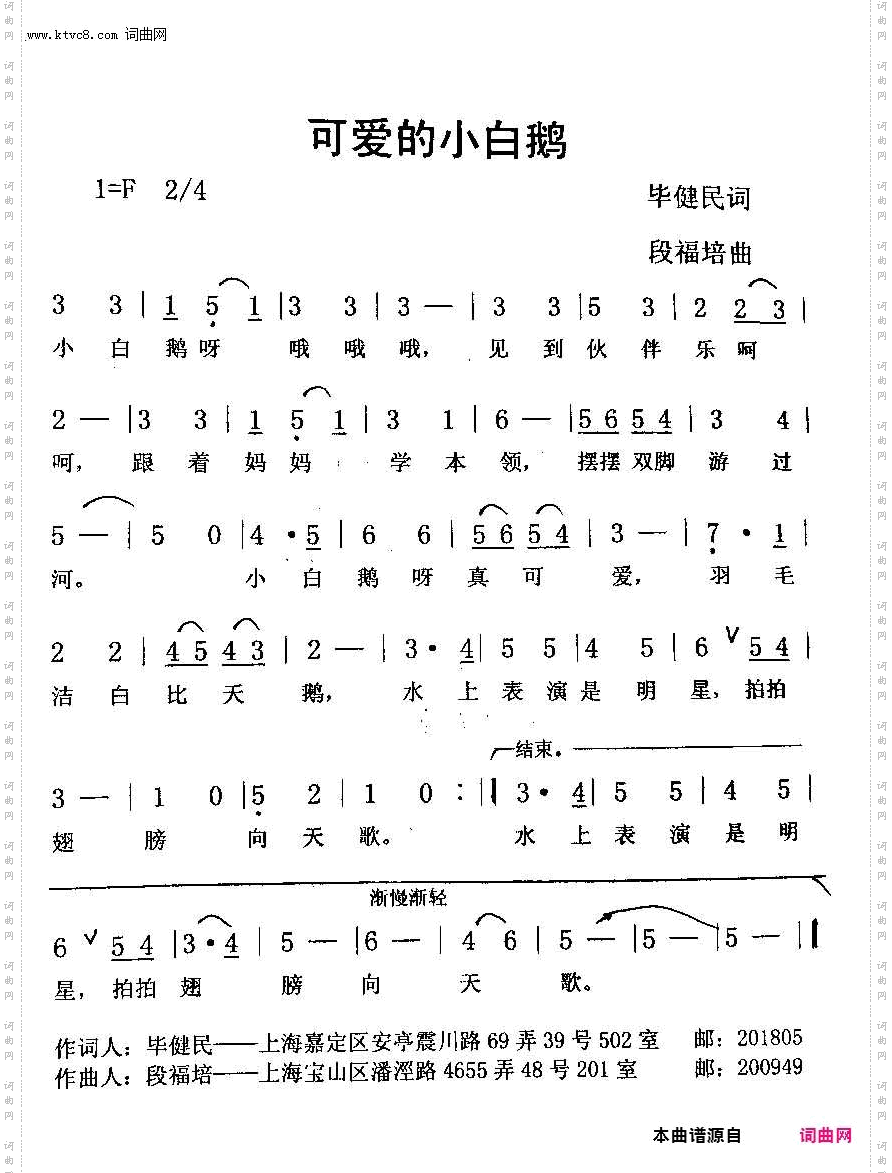 www.ktvc8.com 词曲网
可爱的小白鹅
1=F 2/4
毕健民词
段福培曲
3 3 | 1 5 1 | 3 3 | 3 — | 3 3 | 5 3 | 2 2 3 |
小 白 鹅 呀 哦 哦 哦, 见 到 伙 伴 乐 呵
2 — | 3 3 | 1 5 1 | 3 1 | 6 — | 5 6 5 4 | 3 4 |
呵, 跟 着 妈 妈 学 本 领, 摆摆 双脚 游 过
5 — | 5 0 | 4 · 5 | 6 6 | 5 6 5 4 | 3 — | 7 · 1 |
河。 小 白 鹅 呀 真 可 爱, 羽 毛
2 2 | 4 5 4 3 | 2 — | 3 · 4 | 5 5 | 4 5 | 6 ∨ 5 4 |
洁 白 比 天 鹅, 水 上 表 演 是 明 星, 拍拍
结束。
3 — | 1 0 | 5 2 | 1 0 :‖ 3 · 4 | 5 5 | 4 5 |
翅 膀 向 天 歌。 水 上 表 演 是 明
渐慢渐轻
6 ∨ 5 4 | 3 · 4 | 5 — | 6 — | 4 6 | 5 — | 5 — | 5 — ‖
星, 拍拍 翅 膀 向 天 歌。
作词人: 毕健民——上海嘉定区安亭震川路 69 弄 39 号 502 室 邮: 201805
作曲人: 段福培——上海宝山区潘泾路 4655 弄 48 号 201 室 邮: 200949
本曲谱源自 词曲网